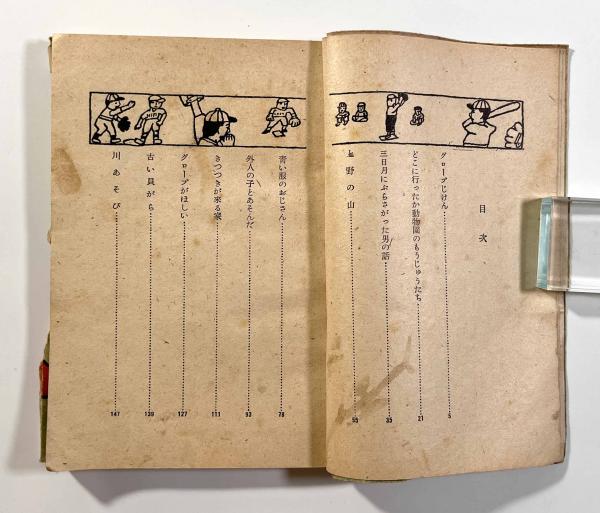 目次
グローブじけん……5
どこに行ったか動物園のもうじゅうたち……21
三日月にぶらさがった男の話……35
上野の山……55
青い服のおじさん……78
外人の子とあそんだ……93
きつつきが来る家……111
グローブがほしい……127
古い貝がら……139
川あそび……147